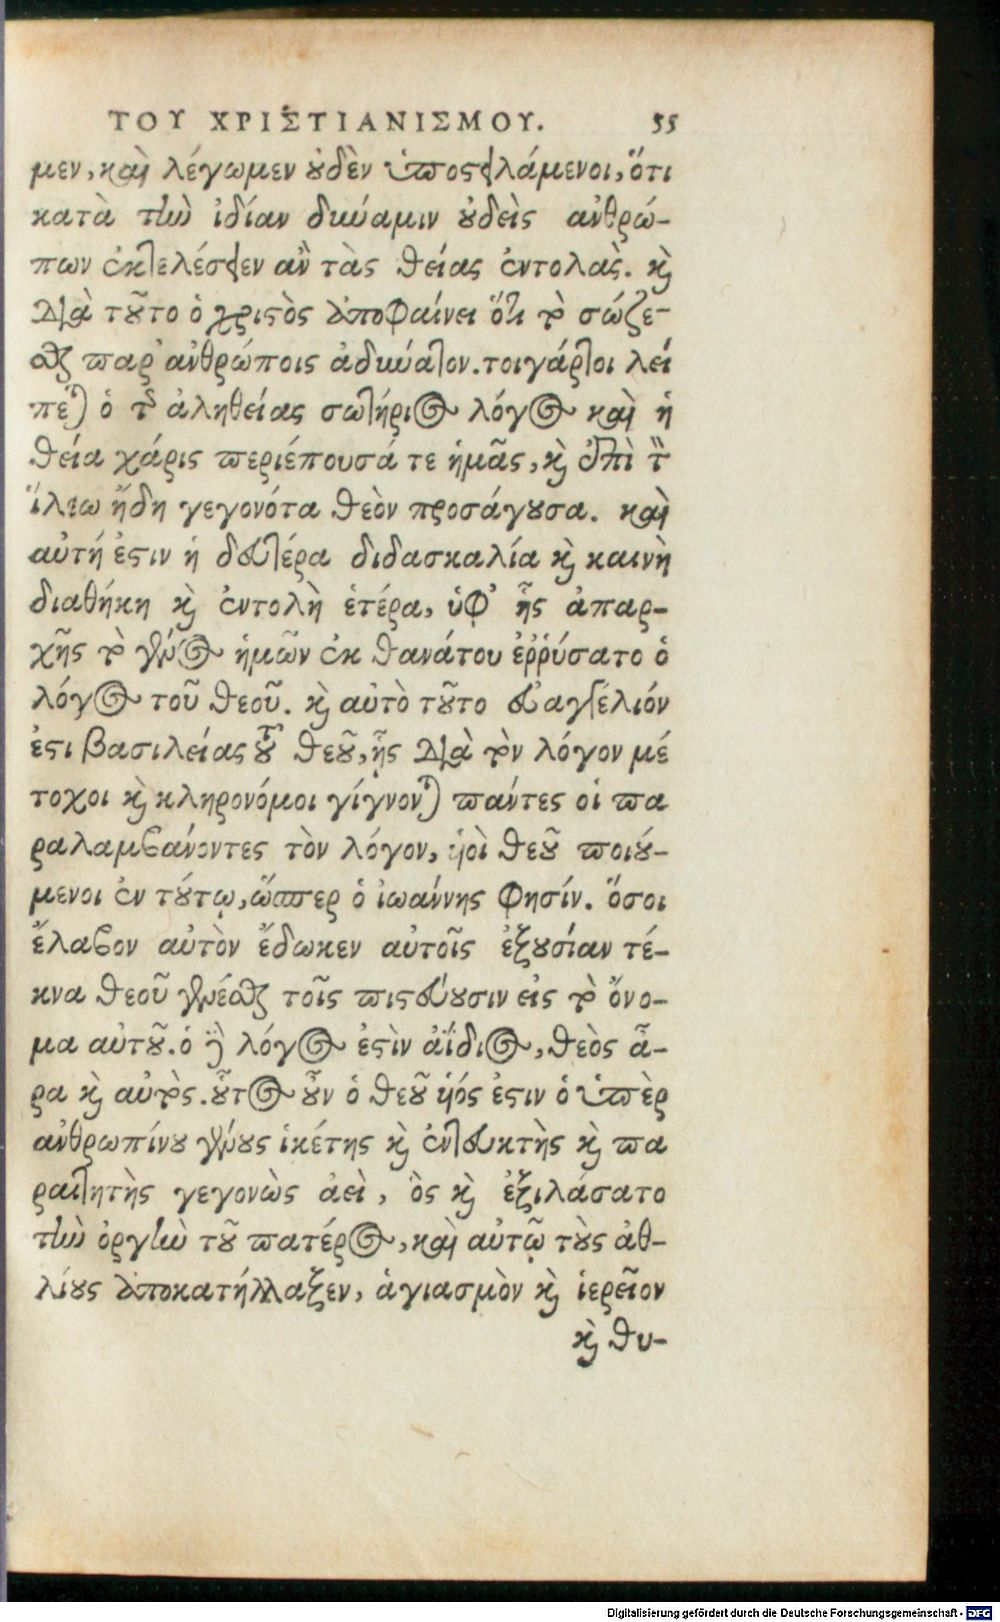 ΤΟΥ ΧΡΙΣΤΙΑΝΙΣΜΟΥ. 55
μεν, καὶ λέγωμεν οὐδὲν ὑποστειλάμενοι, ὅτι
κατὰ τὴν ἰδίαν δύναμιν οὐδεὶς ἀνθρώ-
πων ἐκτελέσειεν ἂν τὰς θείας ἐντολάς. καὶ
διὰ τοῦτο ὁ χριστὸς ἀποφαίνει ὅτι τὸ σώζε-
σθαι παρ' ἀνθρώποις ἀδύνατον. τοιγάρτοι λεί
πεται ὁ τῆς ἀληθείας σωτήριος λόγος καὶ ἡ
θεία χάρις περιέπουσά τε ἡμᾶς, καὶ ἐπὶ τὸν
ἵλεω ἤδη γεγονότα θεὸν προσάγουσα. καὶ
αὐτή ἐστιν ἡ δευτέρα διδασκαλία καὶ καινὴ
διαθήκη καὶ ἐντολὴ ἑτέρα, ὑφ' ἧς ἀπαρ-
χῆς τὸ γένος ἡμῶν ἐκ θανάτου ἐῤῥύσατο ὁ
λόγος τοῦ θεοῦ. καὶ αὐτὸ τοῦτο εὐαγγέλιόν
ἐστι βασιλείας τοῦ θεοῦ, ἧς διὰ τὸν λόγον μέ
τοχοι καὶ κληρονόμοι γίγνονται πάντες οἱ πα
ραλαμβάνοντες τὸν λόγον, υἱοὶ θεοῦ ποιού-
μενοι ἐν τούτῳ, ὥσπερ ὁ ἰωάννης φησίν. ὅσοι
ἔλαβον αὐτὸν ἔδωκεν αὐτοῖς ἐξουσίαν τέ-
κνα θεοῦ γενέσθαι τοῖς πιστεύουσιν εἰς τὸ ὄνο-
μα αὐτοῦ. ὁ γὰρ λόγος ἐστὶν ἀΐδιος, θεὸς ἄ-
ρα καὶ αὐτός. οὗτος οὖν ὁ θεοῦ υἱός ἐστιν ὁ ὑπὲρ
ἀνθρωπίνου γένους ἱκέτης καὶ ἐντευκτὴς καὶ πα
ραιτητὴς γεγονὼς ἀεὶ, ὃς καὶ ἐξιλάσατο
τὴν ὀργὴν τοῦ πατέρος, καὶ αὐτῷ τοὺς ἀθ-
λίους ἀποκατήλλαξεν, ἁγιασμὸν καὶ ἱερεῖον
καὶ θυ-
Digitalisierung gefördert durch die Deutsche Forschungsgemeinschaft - DFG